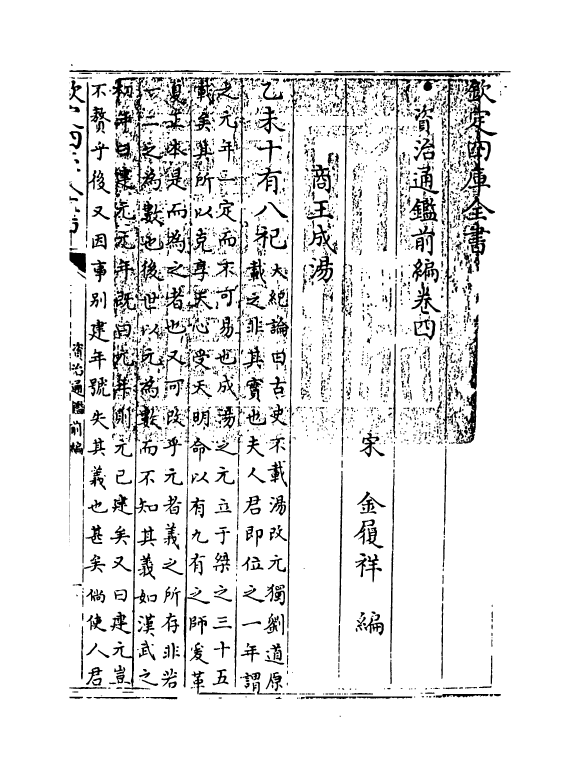 欽定四庫全書
資治通鑑前編卷四
宋 金履祥 編
商王成湯
乙未十有八祀
大紀論曰古史不載湯改元獨劉道原
載之非其實也夫人君即位之一年謂
之元年一定而不可易也成湯之元立于桀之三十五
載矣其所以克享天心受天明命以有九有之師爰革
夏正求是而為之者也又可改乎元者義之所存非若
一二之為數也後世以元為數而不知其義如漢武之
初年曰建元元年既曰元年則元已建矣又曰建元豈
不贅乎後又因事别建年號失其義也甚矣倘使人君
資治通鑑前編